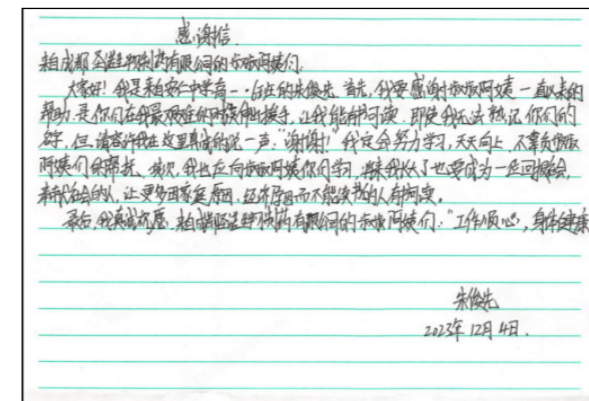 感谢信
来自成都圣诺生物制药有限公司的叔叔阿姨们:
大家好!我是来自中学高一·任在的朱俊先。首先,我要感谢叔叔阿姨一直以来的
帮助,是你们在我最艰难的时候伸出援手,让我能有书可读。即使我无法熟记你们的
名字,但请容许我在这里真诚的说一声:“谢谢!”我定会努力学习,天天向上,不辜负叔叔
阿姨们的帮扶。其次,我也应向叔叔阿姨你们学习,将来我长大了也要成为一位回报社会,
奉献社会的人,让更多因家庭原因,经济原因而不能读书的人有书读。
最后,我真诚祝愿,来自成都圣诺生物制药有限公司的叔叔阿姨们:“工作顺心,身体健康
朱俊先
2023年12月4日.